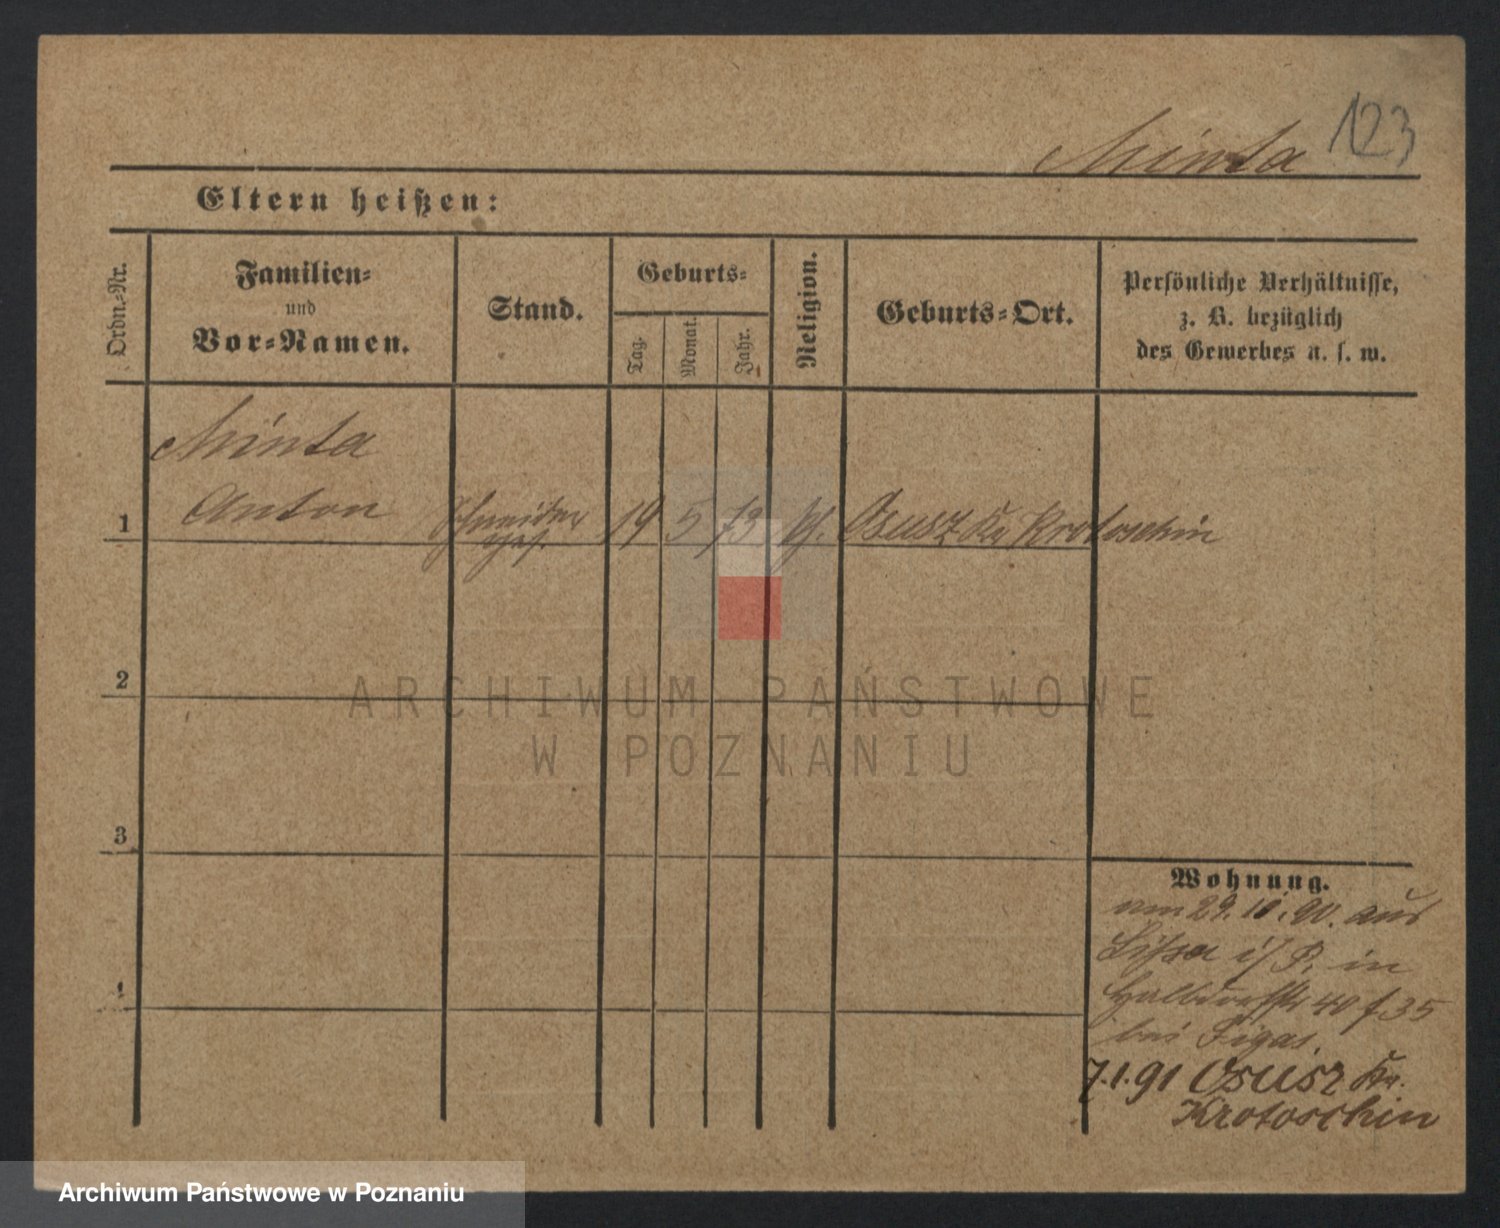 Minta 123
Eltern heißen:
Ordn.-Nr.
Familien-
und
Vor-Namen.
Stand.
Geburts-
Tag.
Monat.
Jahr.
Religion.
Geburts-Ort.
Persönliche Verhältnisse,
z. B. bezüglich
des Gewerbes u. s. w.
Minta
1 Anton Schneider 19 5 73 kf. Osusz Kr Krotoschin
ges.
2
3
4
Wohnung.
am 29.10.90. aus
Lissa i/P. in
Halbdorfstr 40 f 35
bei Figas.
7.1.91 Osusz Kr.
Krotoschin
ARCHIWUM PAŃSTWOWE
W POZNANIU
Archiwum Państwowe w Poznaniu